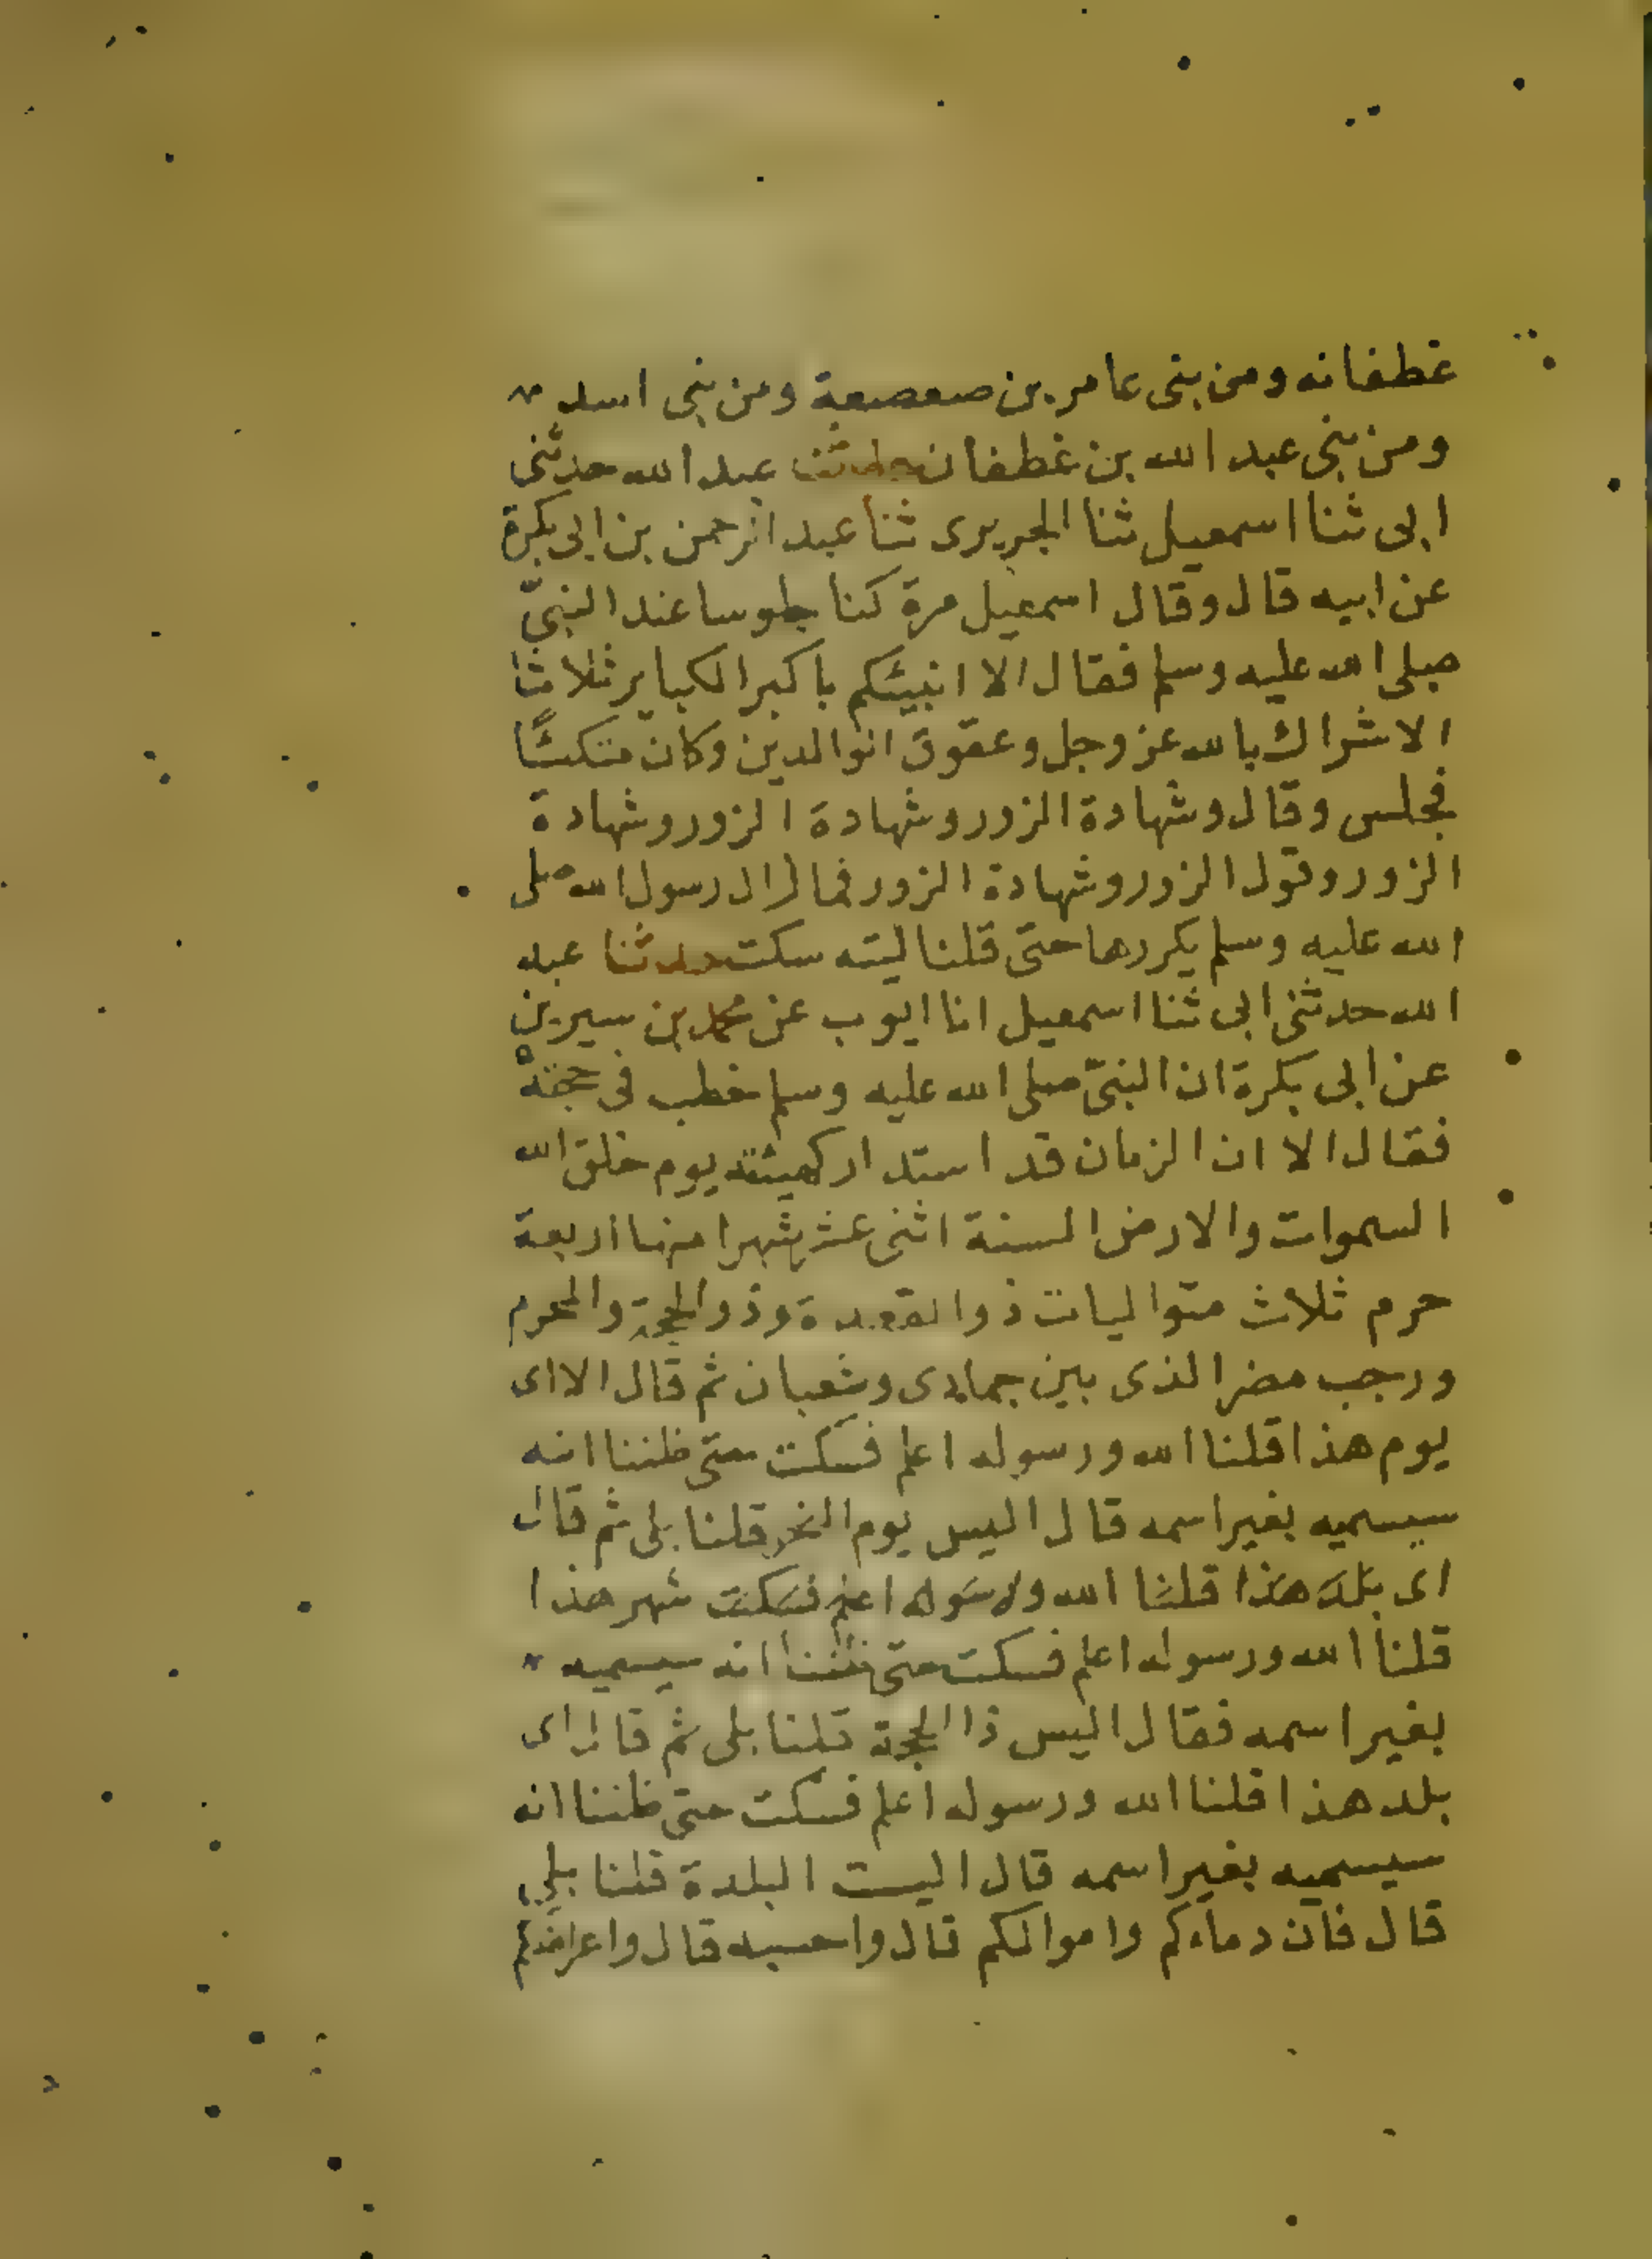 غطفانه ومن بنى عامر بن صعصعة ومن بنى اسد
ومن بنى عبد الله بن غطفان حدثنا عبد الله حدثنى
ابى ثنا اسمعيل ثنا الجريرى ثنا عبد الرحمن بن ابى بكرة
عن ابيه قال وقال اسمعيل مرة كنا جلوسا عند النبىّ
صلى الله عليه وسلم فقال الا انبيئكم باكبر الكباير ثلاثا
الاشراك بالله عز وجل وعقوق الوالدين وكان متكئًا
فجلس وقال وشهادة الزور وشهادة الزور وشهادة
الزور وقول الزور وشهادة الزور فما زال رسول الله صلى
الله عليه وسلم يكررها حتى قلنا ليته سكت حدثنا عبد
الله حدثنى ابى ثنا اسمعيل انا ايوب عن محمد بن سيرين
عن ابى بكرة ان النبىّ صلى الله عليه وسلم خطب فى حجته
فقال الا ان الزمان قد استدار كهيئته يوم خلق الله
السموات والارض السنة اثنى عشر شهرا منها اربعة
حرم ثلاث متواليات ذو القعدة وذو الحجة والمحرم
ورجب مضر الذى بين جمادى وشعبان ثم قال الا اى
يوم هذا قلنا الله ورسوله اعلم فسكت حتى ظننا انه
سيسميه بغير اسمه قال اليس يوم النحر قلنا بلى ثم قال
اى بلد هذا قلنا الله ورسوله اعلم فسكت شهر هذا
قلنا الله ورسوله اعلم فسكت حتى ظننا انه سيسميه
بغير اسمه فقال اليس ذا الحجة قلنا بلى ثم قال اى
بلد هذا قلنا الله ورسوله اعلم فسكت حتى ظننا انه
سيسميه بغير اسمه قال اليست البلدة قلنا بلى
قال فان دماءكم واموالكم قال واحسبه قال واعراضكم